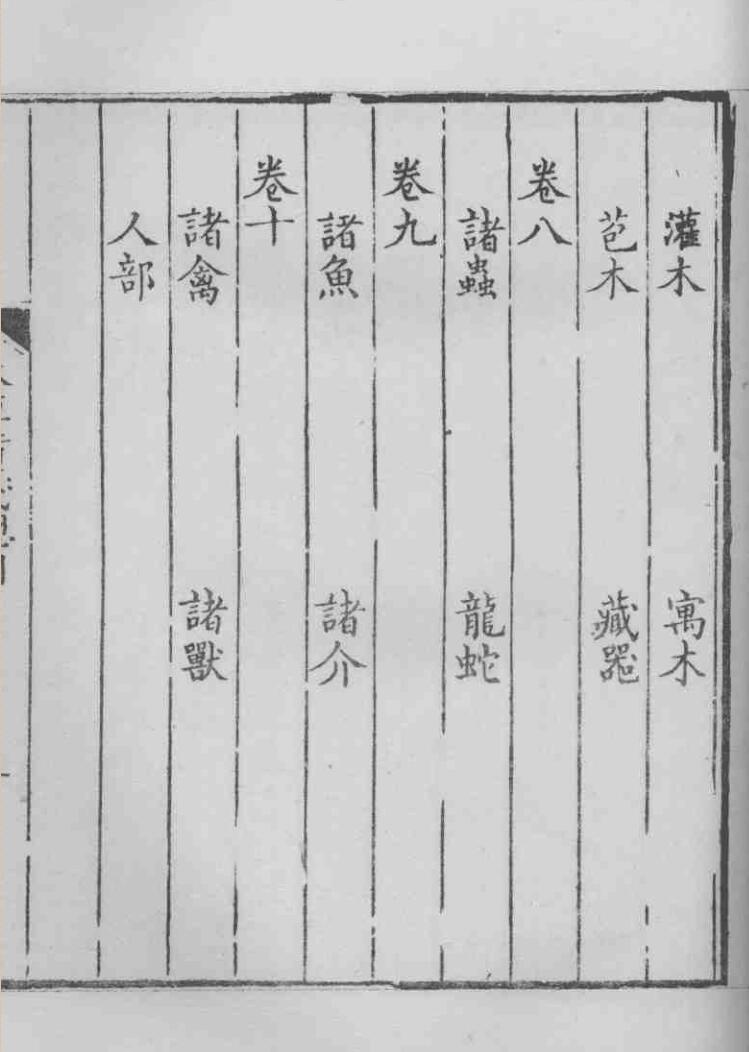 灌木 寓木
苞木 藏器
卷八
諸蟲 龍蛇
卷九
諸魚 諸介
卷十
諸禽 諸獸
人部